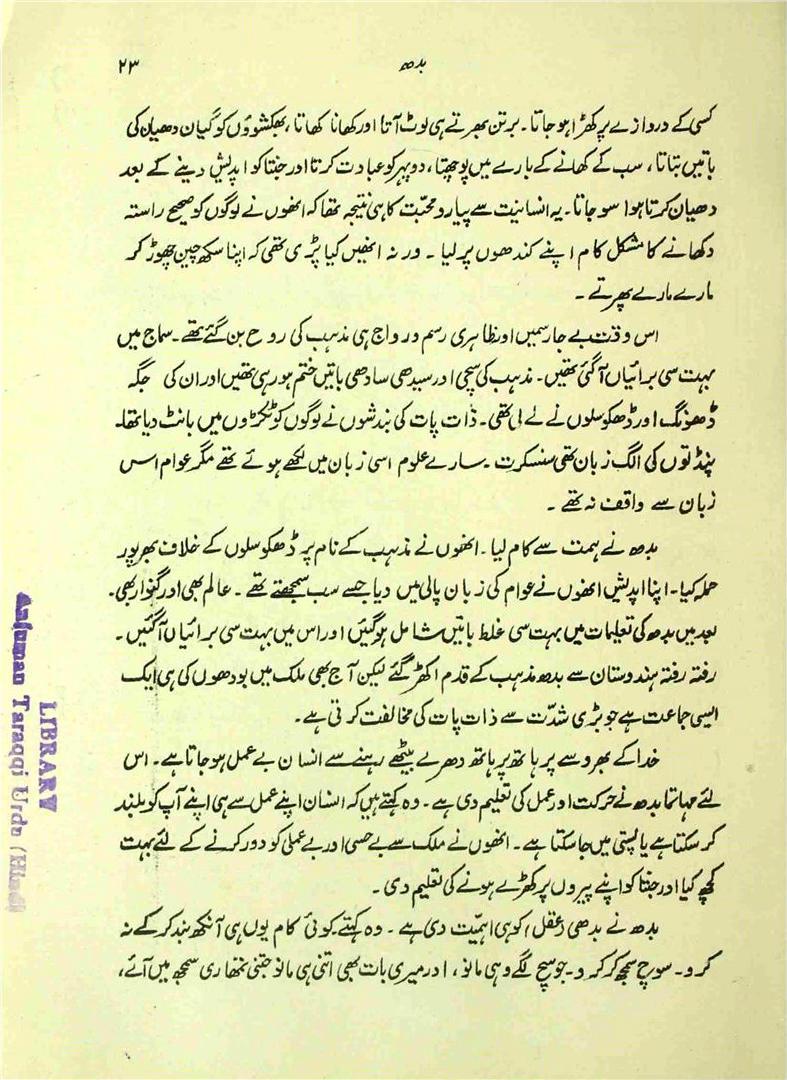 بدھ
۲۳
کسی کے دروازے پر کھڑا ہو جاتا۔ برتن بھرتے ہی لوٹ آتا اور کھانا کھاتا، بھکشوؤں کو گیان دھیان کی
باتیں بتاتا، سب کے کھانے کے بارے میں پوچھتا، دوپہر کو عبادت کرتا اور جنتا کو اپدیش دینے کے بعد
دھیان کرتا ہوا سو جاتا۔ یہ انسانیت سے پیار و محبّت کا ہی نتیجہ تھا کہ انھوں نے لوگوں کو صحیح راستہ
دکھانے کا مشکل کام اپنے کندھوں پر لیا۔ ورنہ انھیں کیا پڑی تھی کہ اپنا سکھ چین چھوڑ کر
مارے مارے پھرتے۔
اس وقت بے جا رسمیں اور ظاہری رسم و رواج ہی مذہب کی روح بن گئے تھے۔ سماج میں
بہت سی برائیاں آ گئی تھیں۔ مذہب کی سچی اور سیدھی سادھی باتیں ختم ہو رہی تھیں اور ان کی جگہ
ڈھونگ اور ڈھکوسلوں نے لے لی تھی۔ ذات پات کی بندشوں نے لوگوں کو ٹکڑوں میں بانٹ دیا تھا۔
پنڈتوں کی الگ زبان تھی سنسکرت۔ سارے علوم اسی زبان میں لکھے ہوئے تھے مگر عوام اس
زبان سے واقف نہ تھے۔
بدھ نے ہمت سے کام لیا۔ انھوں نے مذہب کے نام پر ڈھکوسلوں کے خلاف بھرپور
حملہ کیا۔ اپنا اپدیش انھوں نے عوام کی زبان پالی میں دیا جسے سب سمجھتے تھے۔ عالم بھی اور گنوار بھی۔
بعد میں بدھ کی تعلیمات میں بہت سی غلط باتیں شامل ہو گئیں اور اس میں بہت سی برائیاں آ گئیں۔
رفتہ رفتہ ہندوستان سے بدھ مذہب کے قدم اکھڑ گئے لیکن آج بھی ملک میں بودھوں کی ہی ایک
ایسی جماعت ہے جو بڑی شدّت سے ذات پات کی مخالفت کرتی ہے۔
خدا کے بھروسے پر ہاتھ پر ہاتھ دھرے بیٹھے رہنے سے انسان بے عمل ہو جاتا ہے۔ اس
لئے مہاتما بدھ نے حرکت اور عمل کی تعلیم دی ہے۔ وہ کہتے ہیں کہ انسان اپنے عمل سے ہی اپنے آپ کو بلند
کر سکتا ہے یا پستی میں جا سکتا ہے۔ انھوں نے ملک سے بے حسی اور بے عملی کو دور کرنے کے لئے بہت
کچھ کیا اور جنتا کو اپنے پیروں پر کھڑے ہونے کی تعلیم دی۔
بدھ نے بدھی (عقل) کو ہی اہمیّت دی ہے۔ وہ کہتے کوئی کام یوں ہی آنکھ بند کر کے نہ
کرو۔ سوچ سمجھ کر کرو۔ جو سچ لگے وہی مانو، اور میری بات بھی اتنی ہی مانو جتنی تمھاری سمجھ میں آئے،
LIBRARY
Anjuman Taraqqi Urdu (Hind)